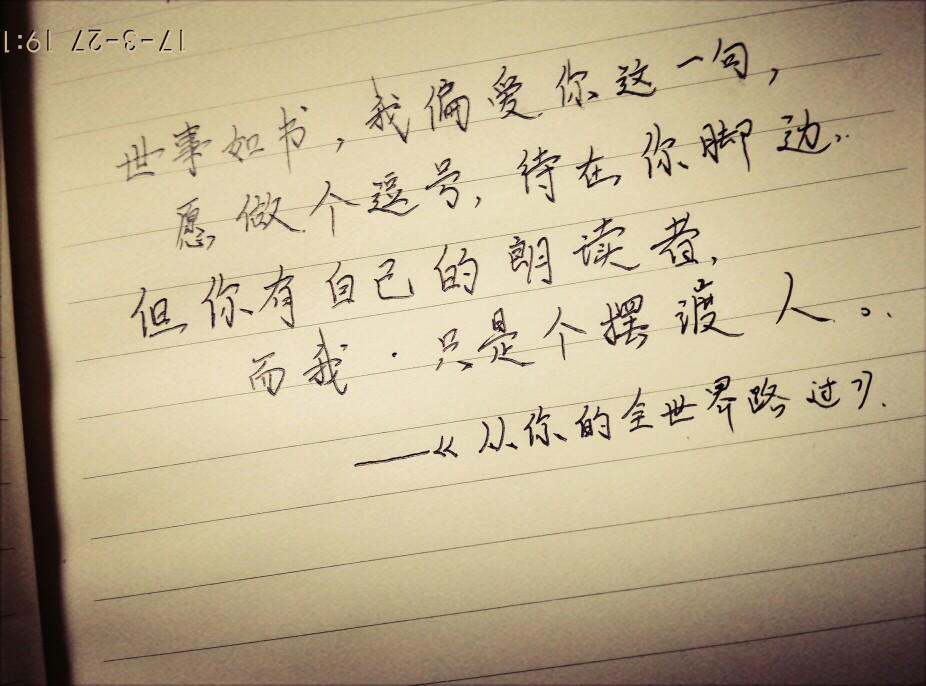 世事如书，我偏爱你这一句，
愿做个逗号，待在你脚边.
但你有自己的朗读者，
而我·只是个摆渡人。
——《从你的全世界路过》
17-3-27 19:1